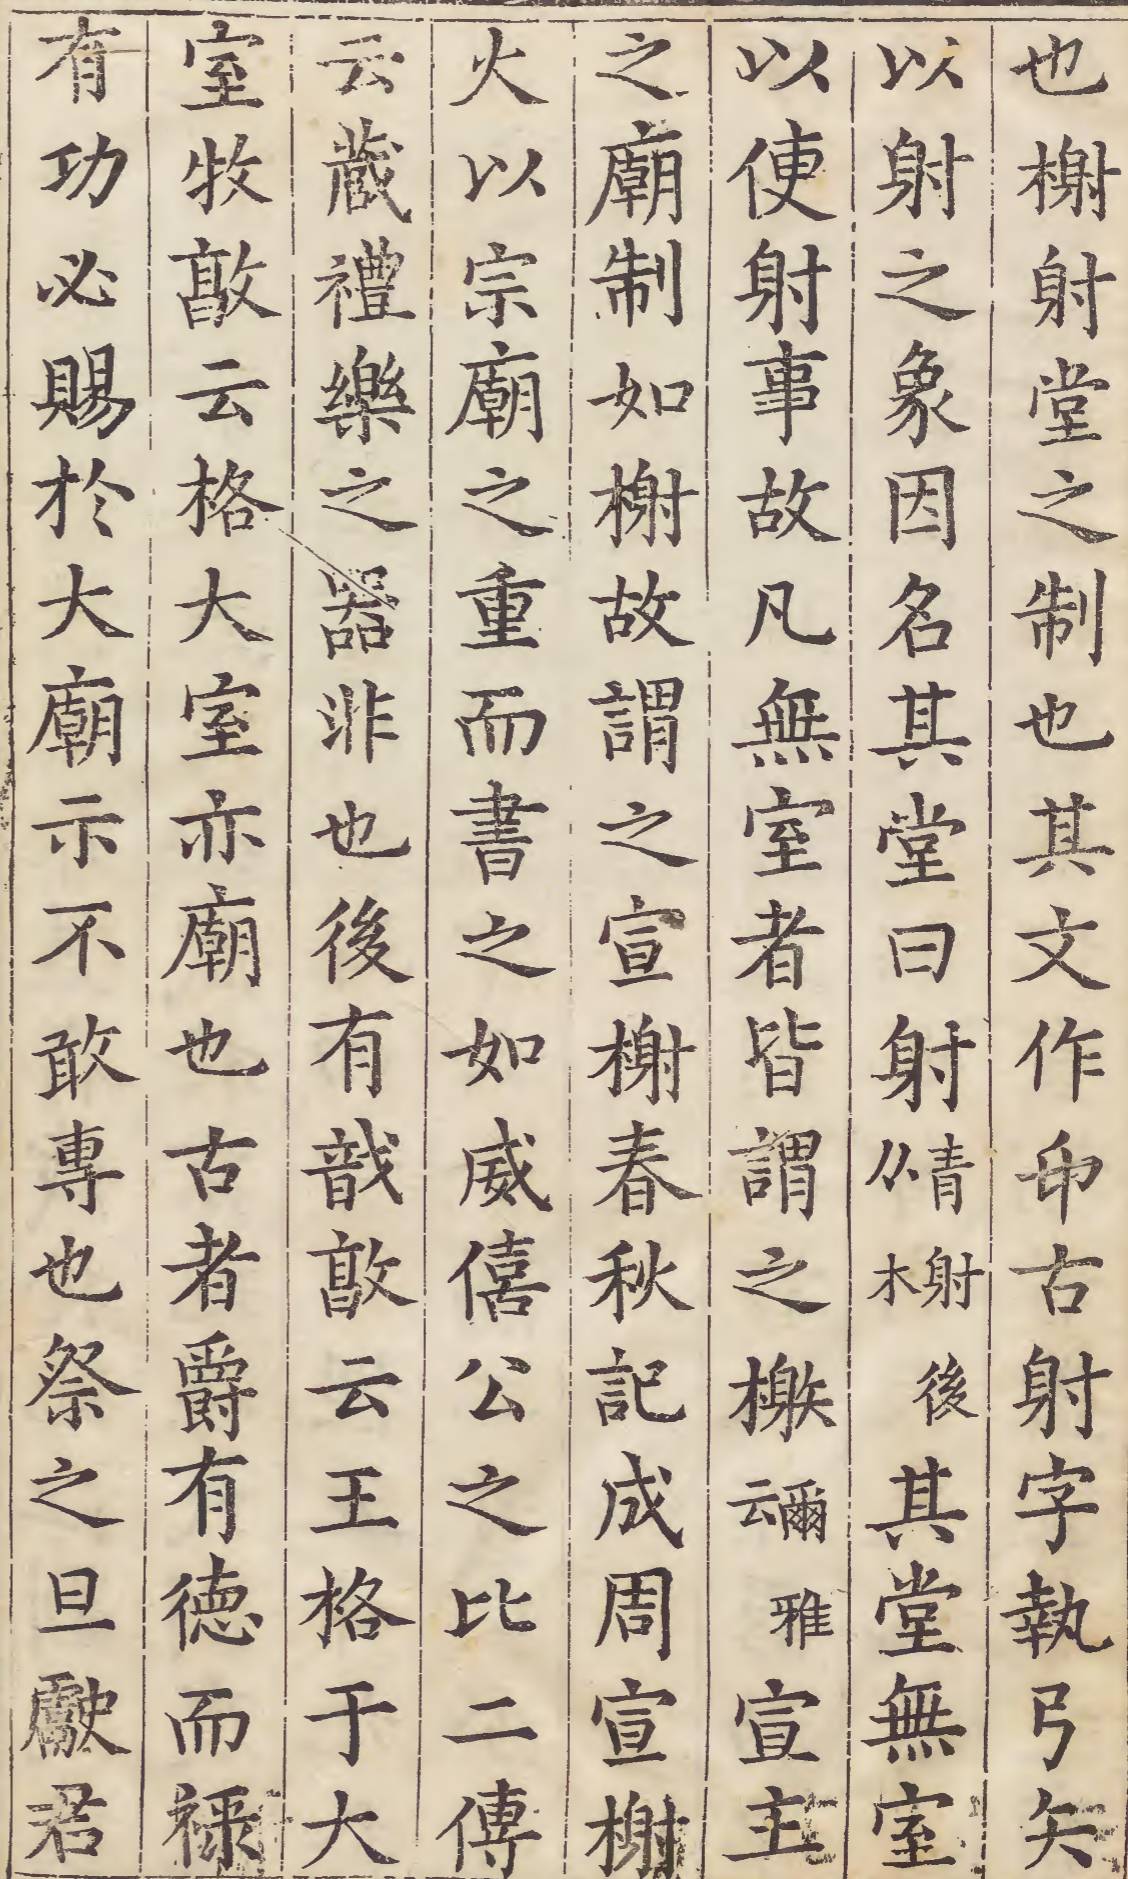 也榭射堂之制也其文作古射字執弓矢
以射之象因名其堂曰射青榭後从木其堂無室
以使射事故凡無室者皆謂之榭爾雅云宣主
之廟制如榭故謂之宣榭春秋記成周宣榭
火以宗廟之重而書之如威僖公之比二傳
云藏禮樂之器非也後有戠敦云王格于大
室牧敦云格大室亦廟也古者爵有德而祿
有功必賜於大廟示不敢專也祭之旦獻君